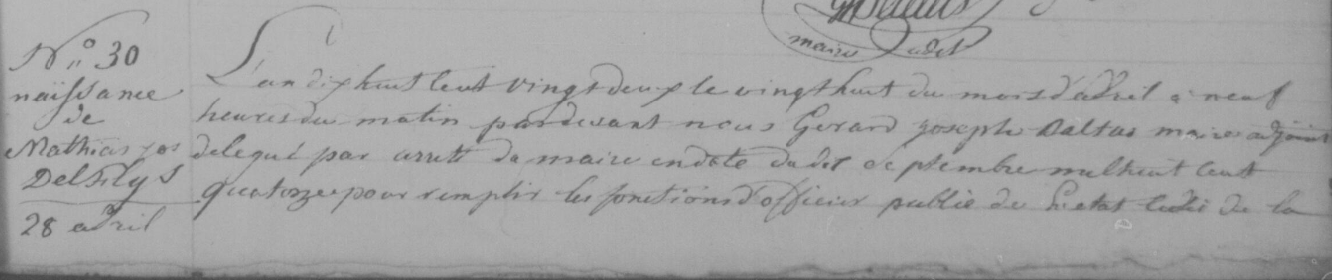 maire adst
N° 30
naissance
de
Mathias jos
28 avril
L'an dix huit cent vingt deux le vingt huit du mois d'avril a neuf
heures du matin pardevant nous Gerard joseph Daltas maire adjoint
delegué par arreté du maire en date du dix septembre mil huit cent
quatorze pour remplir les fonctions d'officier public de l'etat civil de la